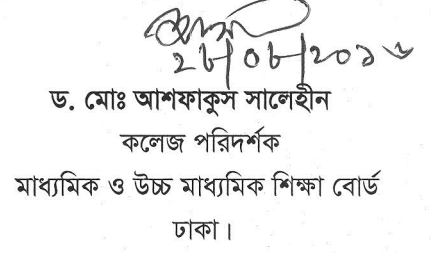 ২৮/০৮/২০১৬
ড. মোঃ আশফাকুস সালেহীন
কলেজ পরিদর্শক
মাধ্যমিক ও উচ্চ মাধ্যমিক শিক্ষা বোর্ড
ঢাকা।